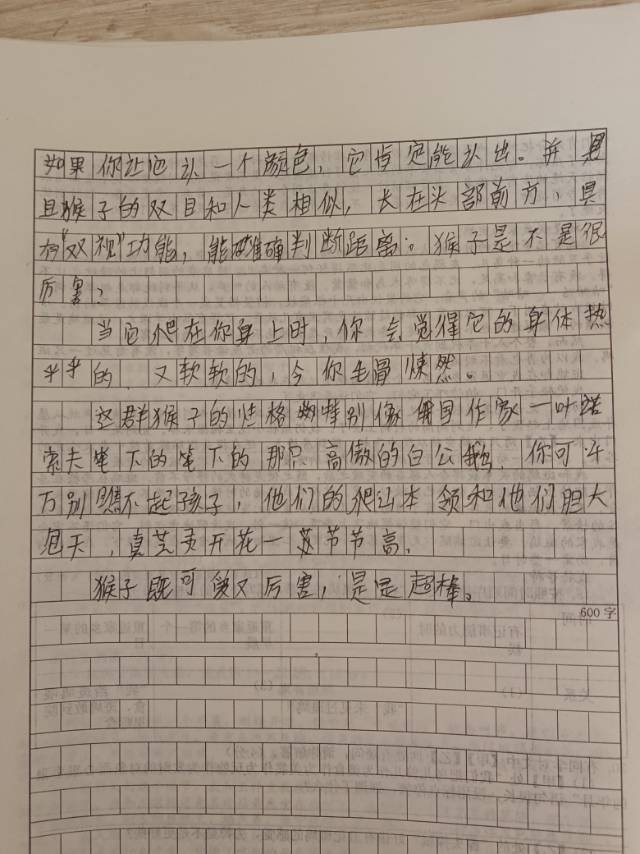 如果你让它认一个颜色，它肯定能认出。并
且猴子的双目和人类相似，长在头部前方，具
有“双视”功能，能准确判断距离。猴子是不是很
厉害？
当它爬在你身上时，你会觉得它的身体热
乎乎的，又软软的，令你毛骨悚然。
这群猴子的性格特别像俄国作家一叶诺
索夫笔下的笔下的那只高傲的白公鹅，你可千
万别瞧不起孩子，他们的爬山本领和他们胆大
包天，真芝麻开花一节节高。
猴子既可爱又厉害，是超棒。
600字